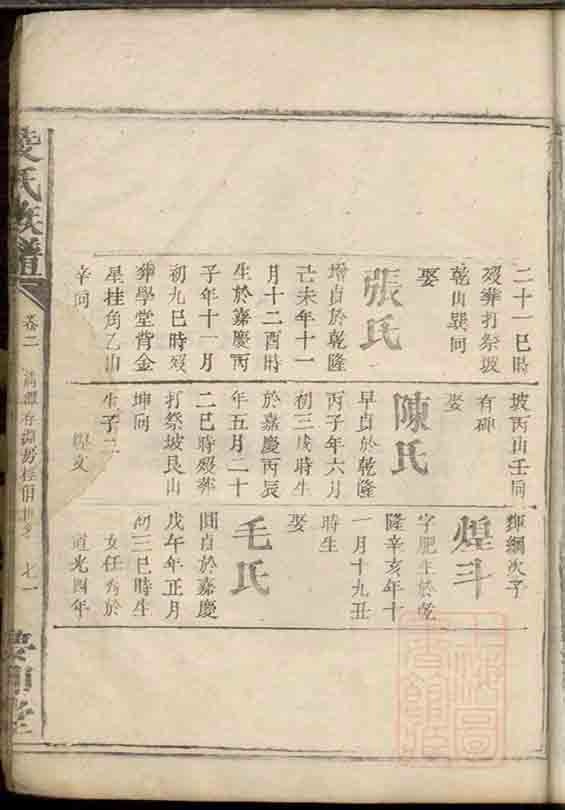 二十一巳時
歿葬打祭坡
乾山巽向
娶
張氏
增貞於乾隆
己未年十一
月十二酉時
生於嘉慶丙
子年十一月
初九巳時歿
葬學堂背金
星挂角乙山
辛向
坡丙山壬向
有碑
娶
陳氏
早貞於乾隆
丙子年六月
初三戌時生
於嘉慶丙辰
年五月二十
二巳時歿葬
打祭坡艮山
坤向
生子二
煌文
綱次子
煌斗
字肥生於乾
隆辛亥年十
一月十九丑
時生
娶
毛氏
圓貞於嘉慶
戊午年正月
初三巳時生
女任秀於
道光四年
氏族譜
卷二
七一
堂
上海圖
書館藏